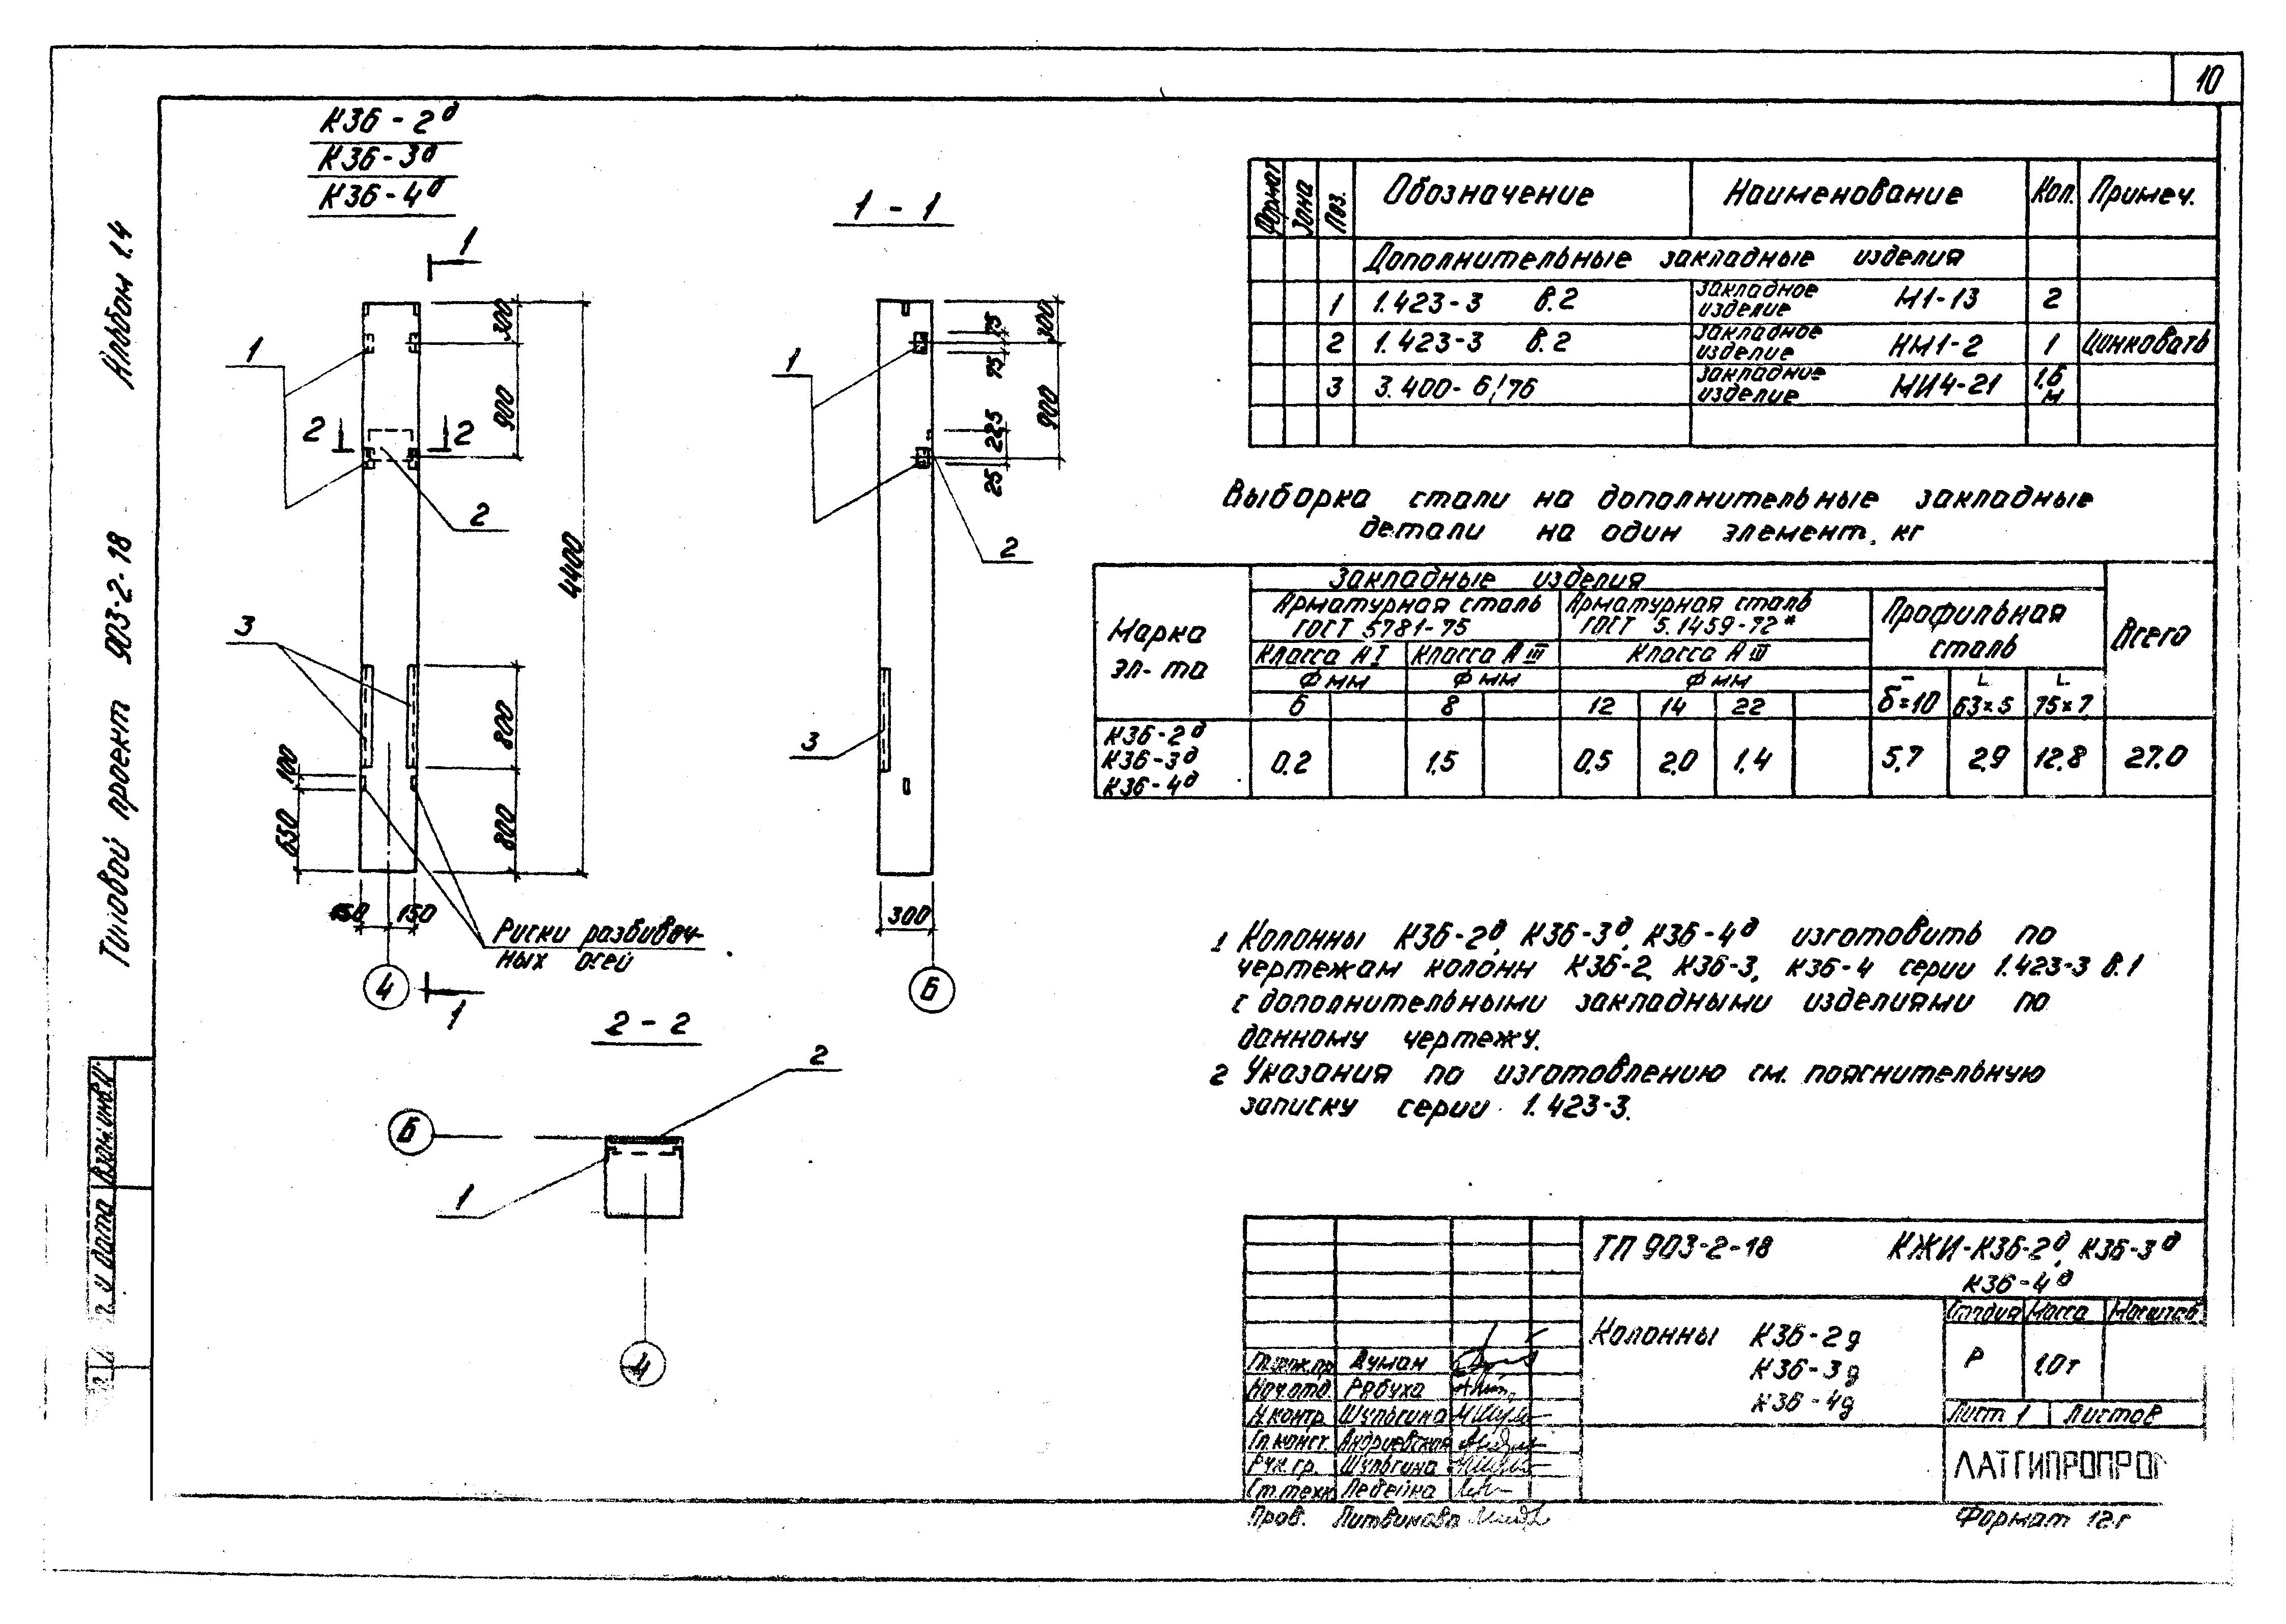 10
Альбом 1.4
Типовой проект 903-2-18
Взам.инв.
и дата
К3Б-2д
К3Б-3д
К3Б-4д
1
1
2
2
2
3
300
900
4400
800
800
100
650
150
150
4
Риски разбивоч-
ных осей
1
1-1
1
2
3
75
75
300
225
900
25
300
Б
2-2
2
Б
1
4
Формат Зона Поз. Обозначение Наименование Кол. Примеч.
Дополнительные закладные изделия
1 1.423-3 в.2 закладное изделие М1-13 2
2 1.423-3 в.2 закладное изделие НМ1-2 1 Цинковать
3 3.400-6/76 закладние изделие МИ4-21 1,6 м
Выборка стали на дополнительные закладные
детали на один элемент, кг
Марка эл-та
Закладные изделия
Арматурная сталь ГОСТ 5781-75
Арматурная сталь ГОСТ 5.1459-72*
Профильная сталь
Всего
Класса АI Класса АIII Класса АIII
Ф мм Ф мм Ф мм
6 8 12 14 22 δ=10 63×5 75×7
К3Б-2д
К3Б-3д
К3Б-4д
0.2 1.5 0.5 2.0 1.4 5.7 2.9 12.8 27.0
1 Колонны К3Б-2д, К3Б-3д, К3Б-4д изготовить по
чертежам колонн К3Б-2, К3Б-3, К3Б-4 серии 1.423-3 в.1
с дополнительными закладными изделиями по
данному чертежу.
2 Указания по изготовлению см. пояснительную
записку серии 1.423-3.
ТП 903-2-18 КЖИ-К3Б-2д, К3Б-3д
К3Б-4д
Колонны К3Б-2д
К3Б-3д
К3Б-4д
Стадия Масса Масштаб
Р 1.0т
Лист 1 Листов
Гл.инж.пр Думан
Нач.отд. Рябуха
Н.контр. Шульгина
Гл.конст. Андриевская
Рук.гр. Шульгина
Ст.техн. Ледейна
Пров. Литвинова
ЛАТГИПРОПРО
Формат 12г